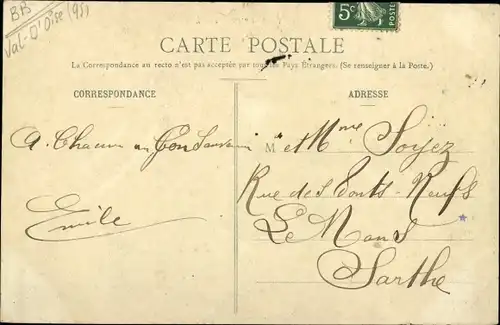 BB
Val-D'Oise (95)
5c
POSTES
CARTE POSTALE
La Correspondance au recto n'est pas acceptée par tous les Pays Étrangers. (Se renseigner à la Poste.)
CORRESPONDANCE
ADRESSE
A. Chacun un Bon Souvenir
Emile
M et Mme Soyez
Rue des Ponts-Neufs
Le Mans
Sarthe